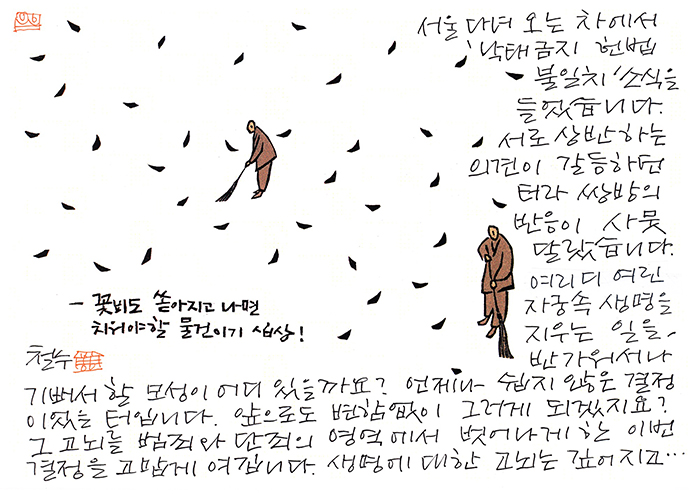 서울 다녀 오는 차에서
'낙태금지 헌법
불일치' 소식을
들었습니다.
서로 상반하는
의견이 갈등하던
터라 쌍방의
반응이 사뭇
달랐습니다.
여리디 여린
자궁속 생명을
지우는 일을,
반가워서나
기뻐서 할 모성이 어디 있을까요? 언제나 쉽지 않은 결정
이었을 터입니다. 앞으로도 변함없이 그러게 되겠지요?
그 고뇌를 범죄와 단죄의 영역에서 벗어나게 한 이번
결정을 고맙게 여깁니다. 생명에 대한 고뇌는 깊어지고…
- 꽃비도 쏟아지고 나면
치워야할 물건이기 십상!
철수